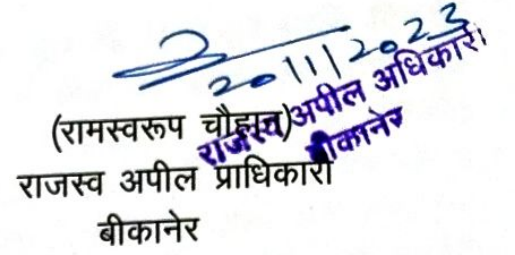 20/11/2023
(रामस्वरूप चौहान)
राजस्व अपील अधिकारी
बीकानेर
राजस्व अपील प्राधिकारी
बीकानेर